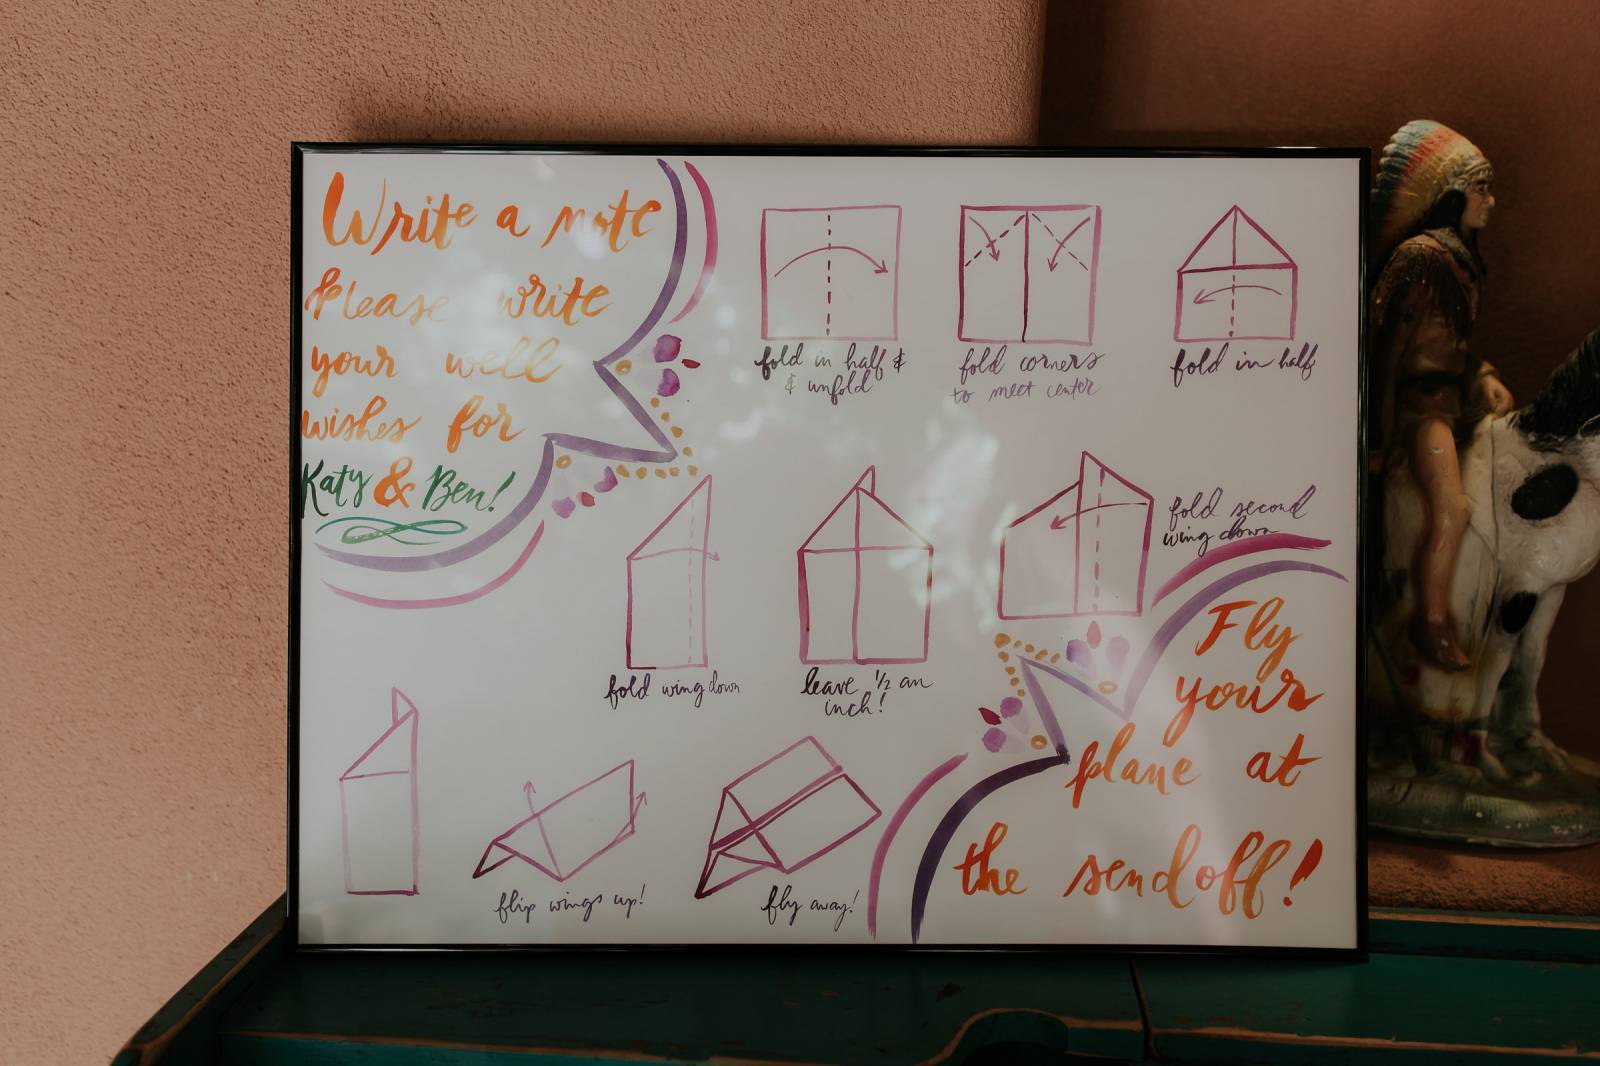 Write a note
Please write
your well
wishes for
Katy & Ben!
fold in half &
& unfold
fold corners
to meet center
fold in half
fold wing down
leave ½ an
inch!
fold second
wing down
flip wings up!
fly away!
Fly
your
plane at
the sendoff!